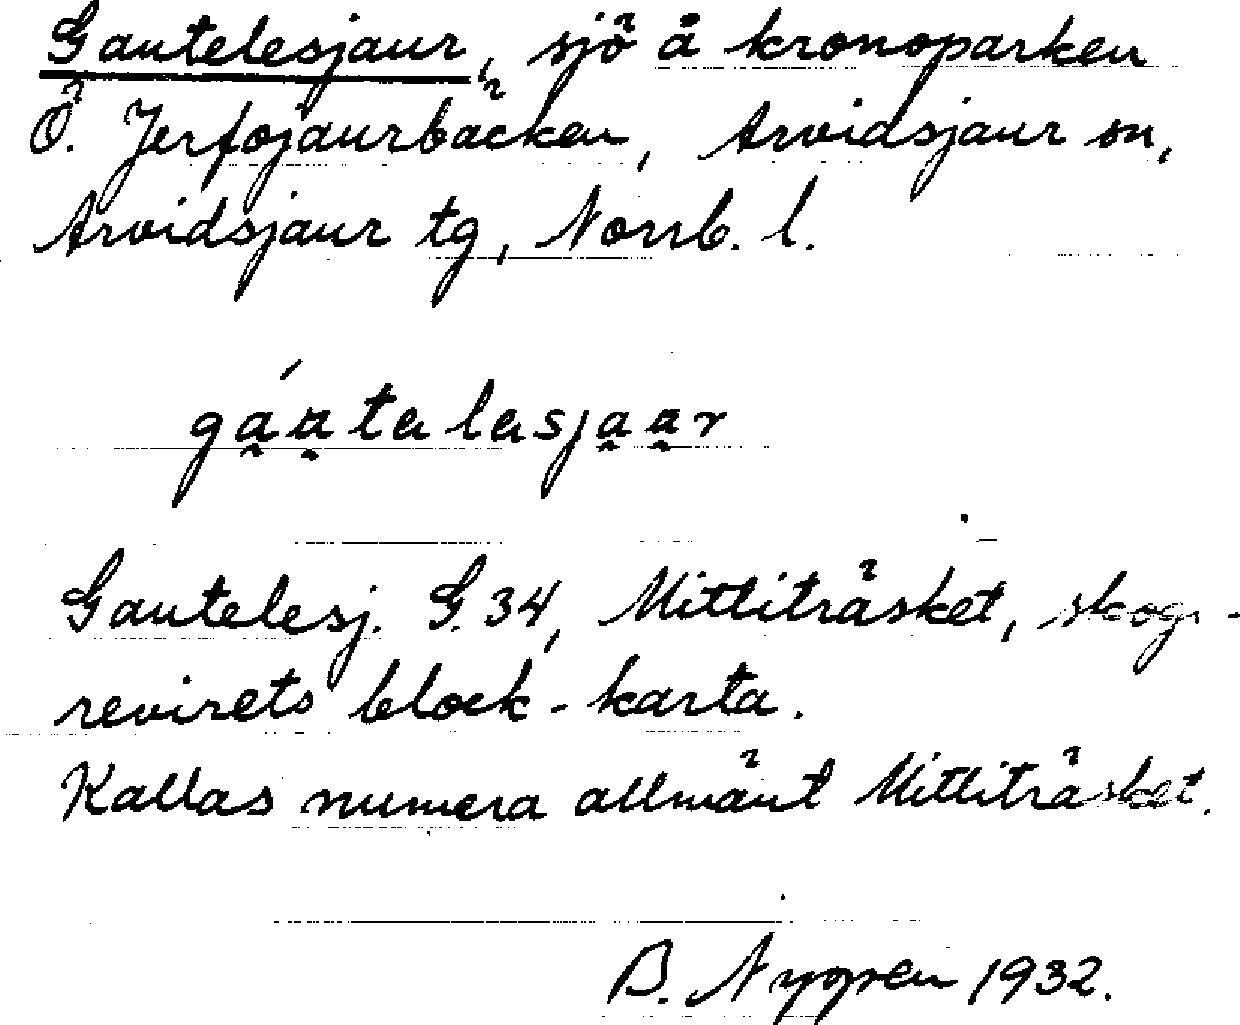 Gautelesjaur, sjö å kronoparken
Ö. Jerfojaurbäcken, Arvidsjaur sn,
Arvidsjaur tg, Norrb. l.
gáutelesjaur
Gautelesj. G. 34, Mittiträsket, skogs-
revirets block-karta.
Kallas numera allmänt Mittiträsket.
B. Nygren 1932.